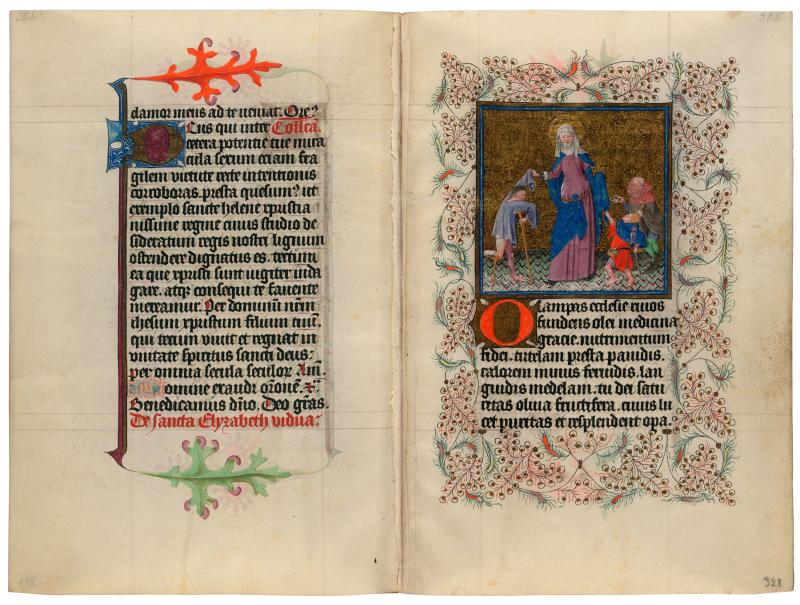 damor meus ad te veniat. Ore?
Deus qui inter Collca.
cetera potentie tue mira
cula sexum eciam fra
gilem virtute recte intentionis
corroboras. presta quesum? ut
exemplo sancte helene xpistia
nissime regine cuius studio de
sideratum regis nostri lignum
ostendere dignatus es. tectum
ea que xpisti sunt iugiter inda
gare. atqz consequi te fauente
mereamur. Per dominū nr̄m
ihesum xpistum filium tuū.
qui tecum viuit et regnat in
vnitate spiritus sancti deus:
per omnia secula seculor Am̄.
Domine exaudi or̄onē. X
Benedicamus dn̄o. Deo gr̄as.
De sancta Elyzabeth vidua:
O lampas ecclesie riuos
fundens olei medicina
gracie. nutrimentum
fidei. tutelam presta pauidis.
calorem minus feruidis. lan
guidis medelam. tu dei satu
ritas oliua fructifera. cuius lu
cet puritas et resplendent opa.
321